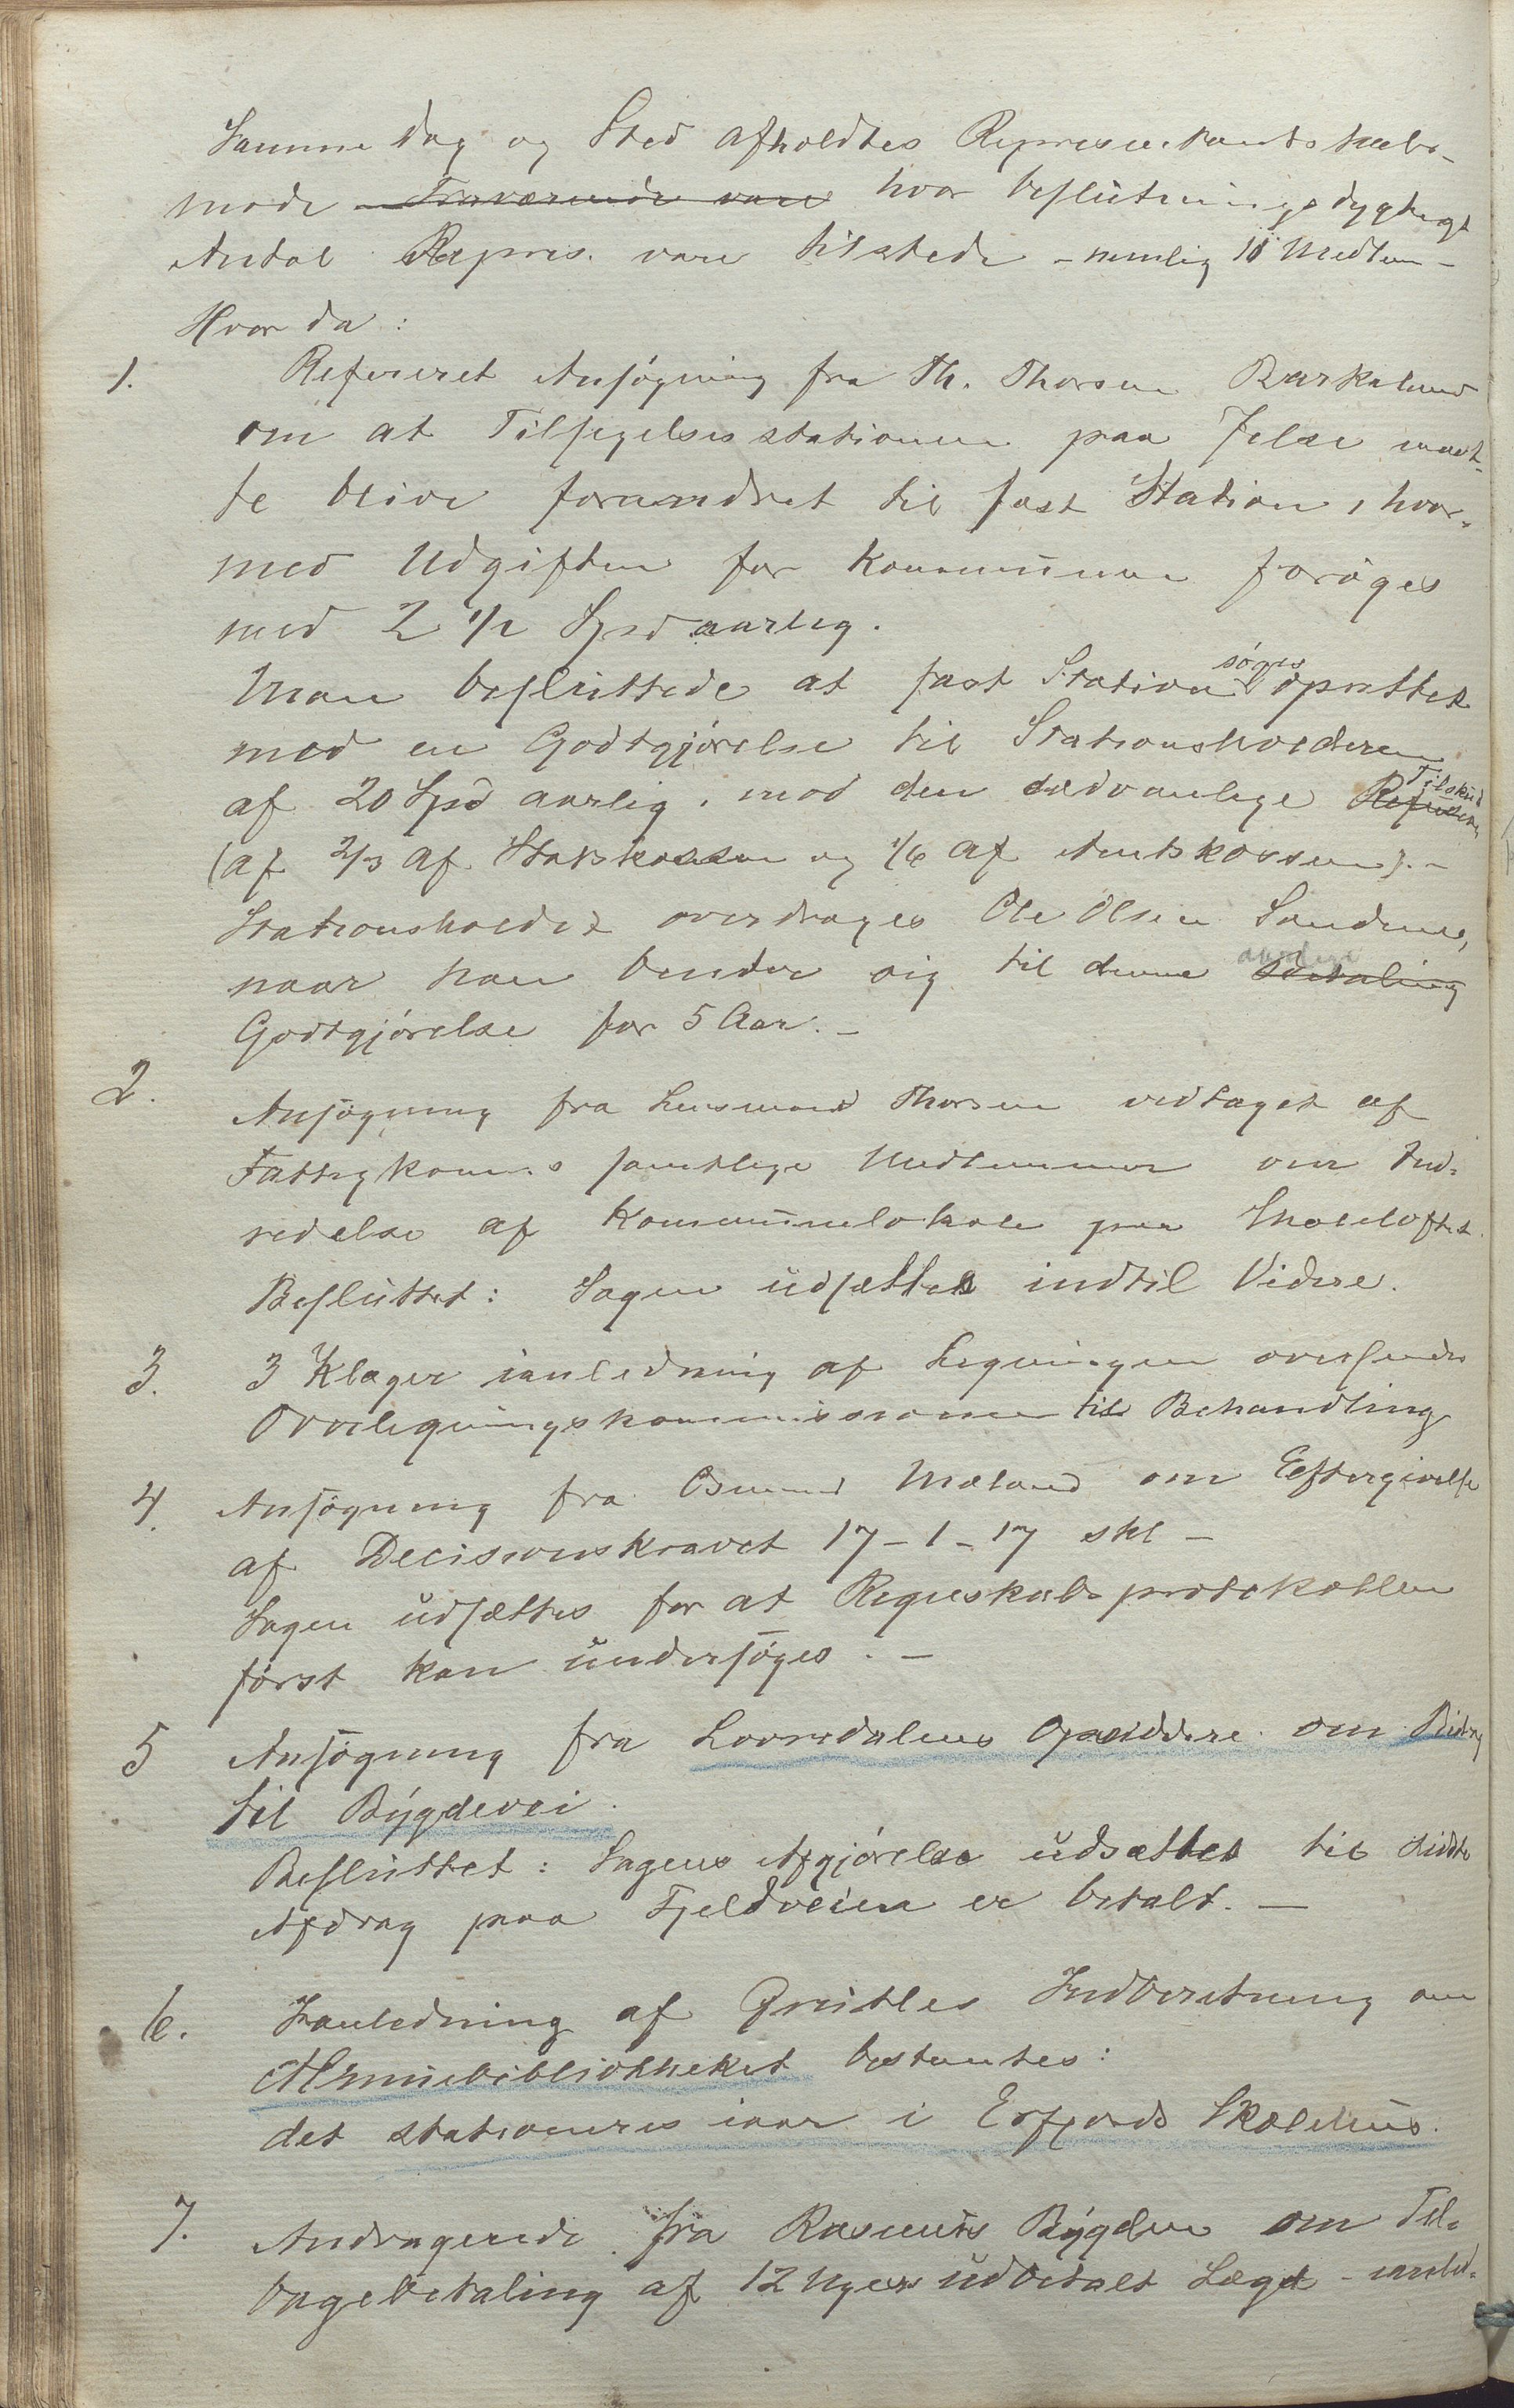 Samme Dag og Sted afholdtes Representantskabs-
møde Fraværende vare hvor beslutningsdygtigt
Antal Repres. vare tilstede - nemlig 11 Medlem -
Hvor da:
1. Refereret Ansøgning fra Th. Thorsen Barkeland
om at Tilsigelsesstationen paa Jelse maat-
te blive forandret til fast Station, hvor-
med Udgiften for Kommunen forøges
med 2 1/2 Spd aarlig.
Man besluttede at fast Station søges oprettet
med en Godtgjørelse til Stationsholderen
af 20 Spd aarlig, mod den sædvanlige Refusion Tilskud
(af 2/3 af Statskassen og 1/6 af Amtskassen). -
Stationsholdet overdrages Ole Olsen Sandnes,
naar han binder sig til denne aarlige Betaling
Godtgjørelse for 5 Aar. -
2. Ansøgning fra Lensmand Thorsen vedtaget af
Fattigkomms samtlige Medlemmer om Ind-
redelse af Kommunelokale paa Skoleloftet.
Besluttet: Sagen udsættes indtil Videre.
3. 3 Klager ianledning af Ligningen oversendes
Overligningskommissionen til Behandling
4. Ansøgning fra Osmund Mæland om Eftergivelse
af Decisionskravet 17-1-17 skl -
Sagen udsættes for at Regnskabsprotokollen
først kan undersøges. -
5 Ansøgning fra Lovradalens Opsiddere om Bidrag
til Bygdevei.
Besluttet: Sagens Afgjørelse udsættes til sidste
Afdrag paa Fjeldveien er betalt. -
6. Ianledning af Indberetning om
Almuebibliotheket bestemtes:
det stationeres iaar i Erfjords Skolehus.
7. Andragende fra Rasmus Bygden om Til-
bagebetaling af 12 Ugers udbetalt Lægd - ianled-